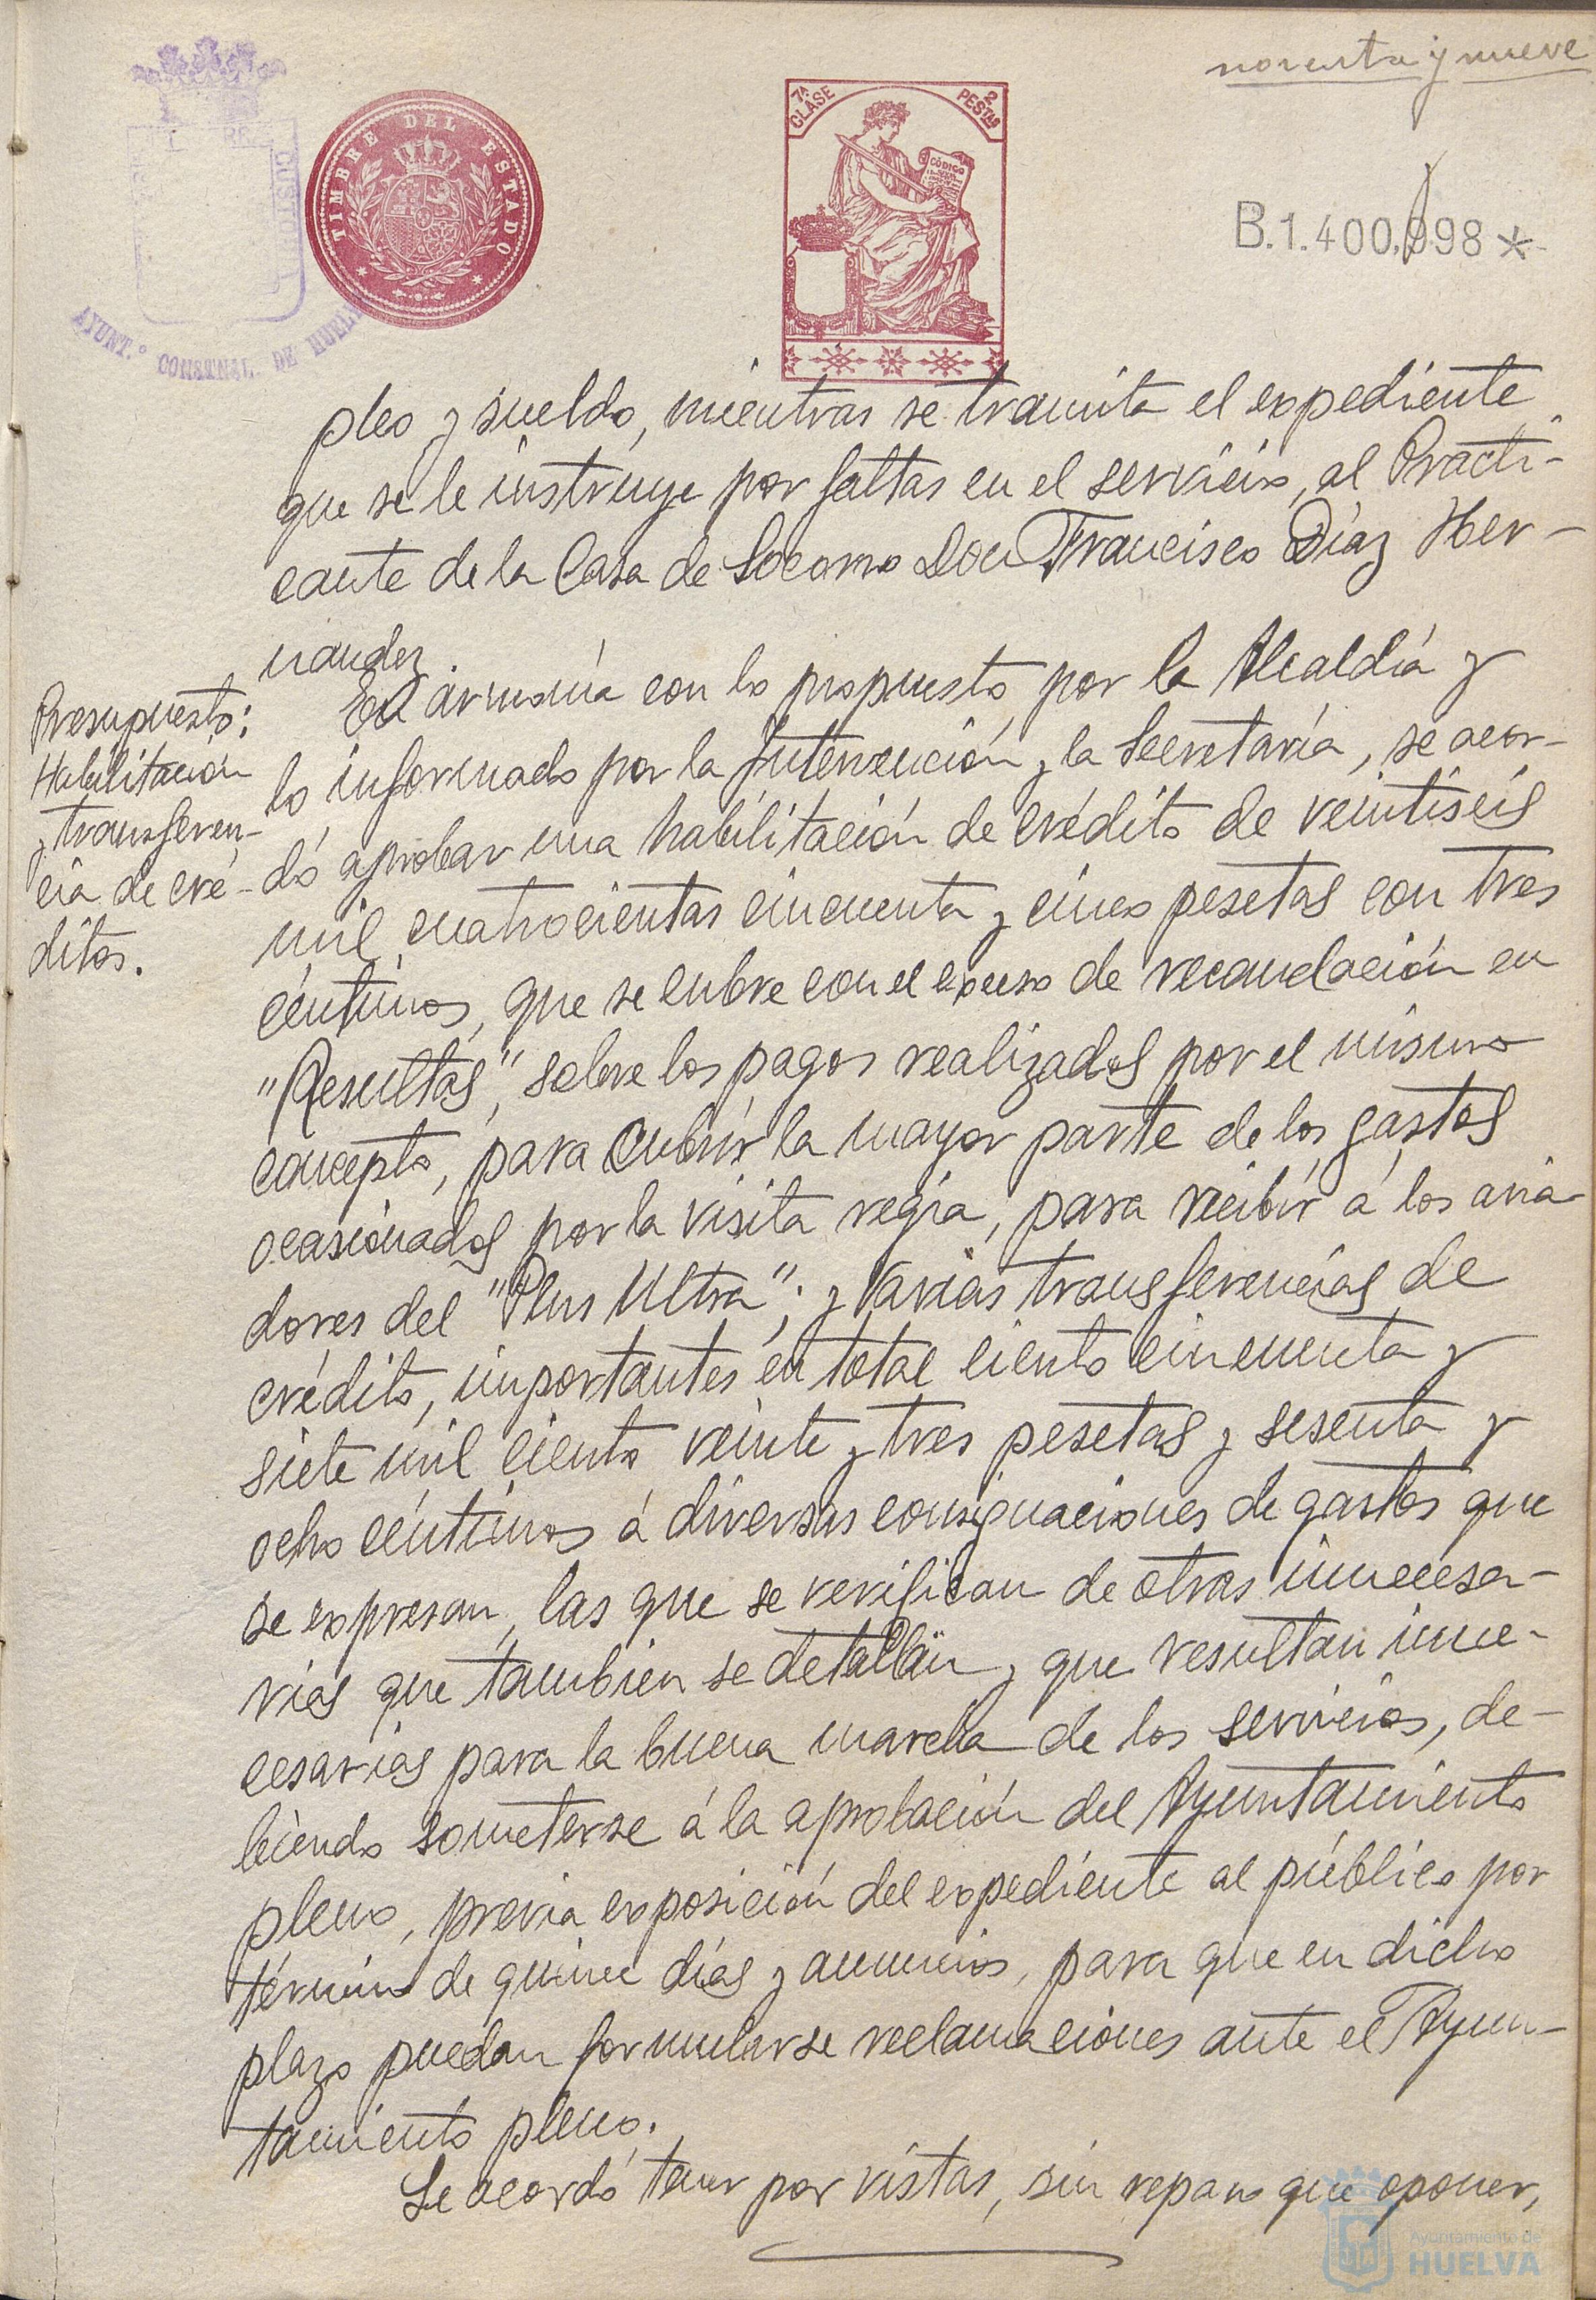 noventa y nueve
TIMBRE DEL ESTADO
7ª CLASE
2 PESTAS
CÓDIGO
B.1.400.998*
AYUNT.º CONSTNAL. DE HUELVA
pleo y sueldo, mientras se tramita el expediente
que se le instruye por faltas en el servicio, al Practi-
cante de la Casa de Socorro Don Francisco Díaz Her-
nandez.
Presupuesto:
Habilitación
y transferen-
cia de cré-
ditos.
En armonía con lo propuesto por la Alcaldía y
lo informado por la Intervención y la Secretaría, se acor-
dó aprobar una habilitación de crédito de veintiseis
mil cuatrocientas cincuenta y cinco pesetas con tres
céntimos, que se cubre con el exceso de recaudación en
"Resultas", sobre los pagos realizados por el mismo
concepto, para cubrir la mayor parte de los gastos
ocasionados por la visita regia, para recibir á los avia-
dores del "Plus Ultra"; y varias transferencias de
crédito, importantes en total ciento cincuenta y
siete mil ciento veinte y tres pesetas y sesenta y
ocho céntimos á diversas consignaciones de gastos que
se expresan, las que se verifican de otras innecesa-
rias que tambien se detallan y que resultan inne-
cesarias para la buena marcha de los servicios, de-
biendo someterse á la aprobación del Ayuntamiento
pleno, previa exposición del expediente al público por
término de quince días y anuncios, para que en dicho
plazo puedan formularse reclamaciones ante el Ayun-
tamiento pleno.
Se acordó tener por vistas, sin reparo que oponer,
Ayuntamiento de
HUELVA